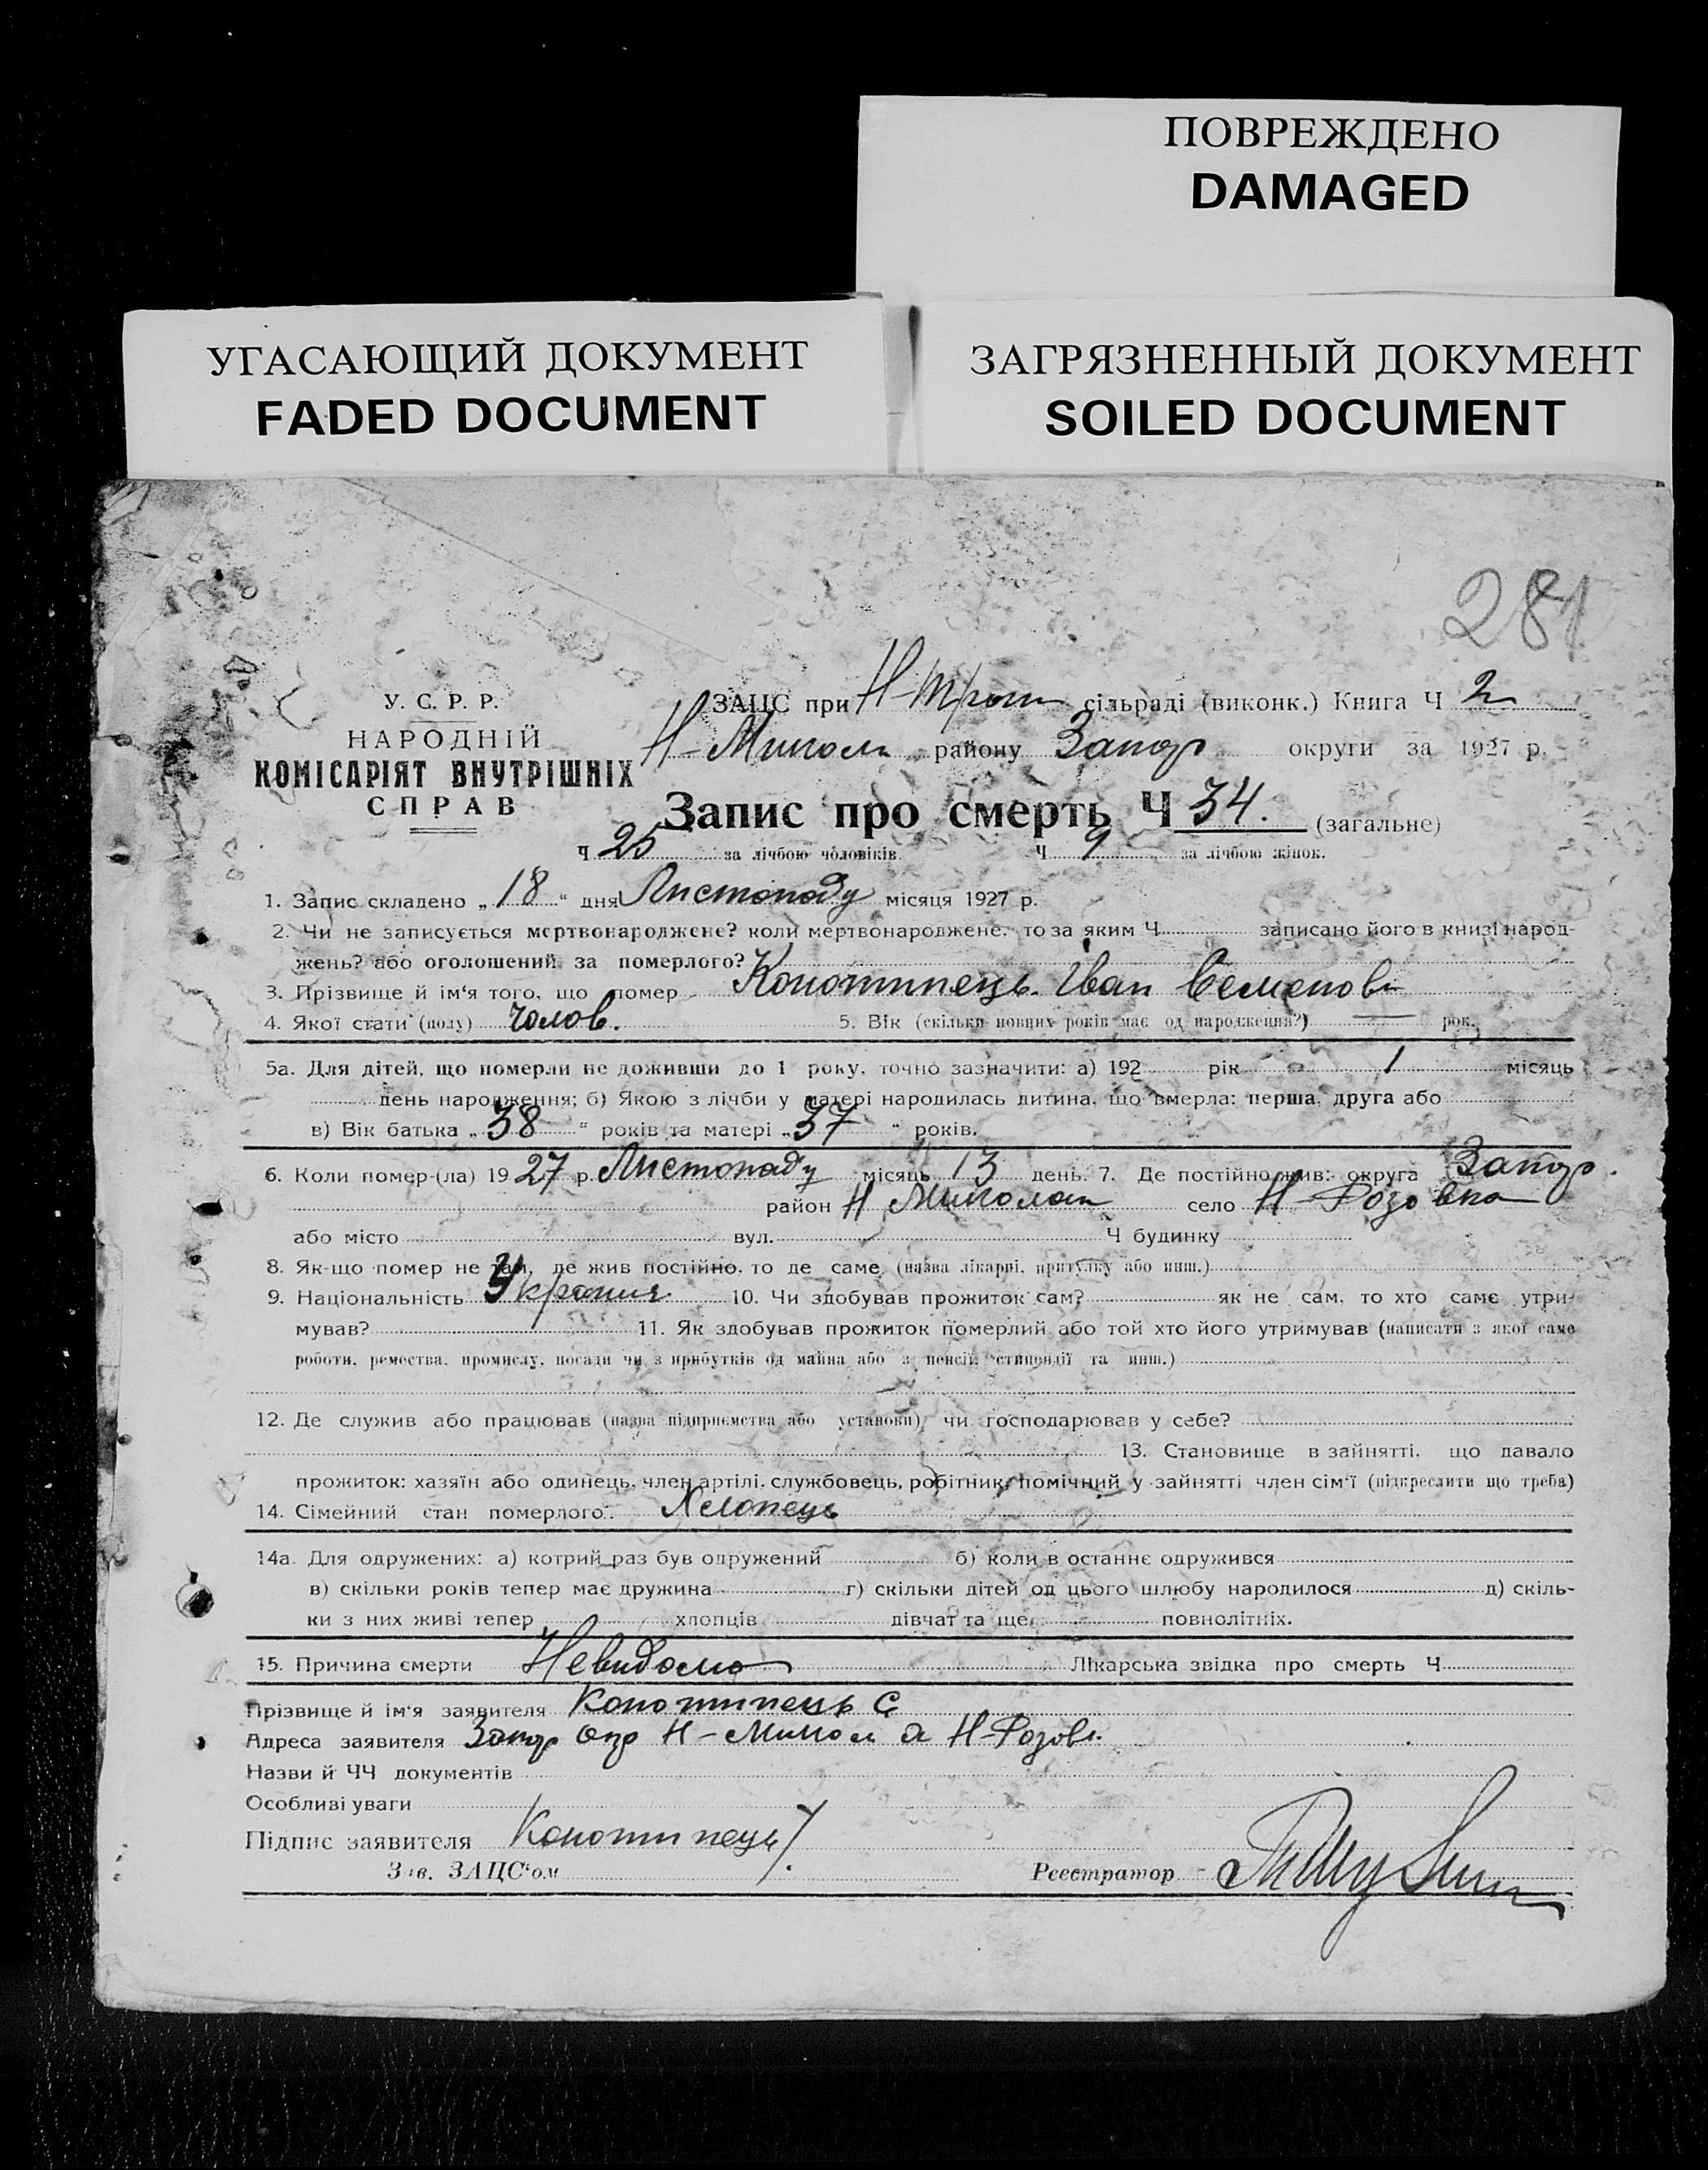 ПОВРЕЖДЕНО
DAMAGED
УГАСАЮЩИЙ ДОКУМЕНТ
FADED DOCUMENT
ЗАГРЯЗНЕННЫЙ ДОКУМЕНТ
SOILED DOCUMENT
281
У. С. Р. Р.
НАРОДНІЙ
КОМІСАРІЯТ ВНУТРІШНІХ
СПРАВ
ЗАЦС при Н-Трот сільраді (виконк.) Книга Ч 2
Н-Микола району Запор округи за 1927 р.
Запис про смерть Ч 34. (загальне)
Ч 25 за лічбою чоловіків. Ч 9 за лічбою жінок.
1. Запис складено „18“ дня Листопаду місяця 1927 р.
2. Чи не записується мертвонароджене? коли мертвонароджене, то за яким Ч записано його в книзі народ-
жень? або оголошений за померлого?
3. Прізвище й ім‘я того, що помер Конотипець Іван Семенов
4. Якої стати (полу) Чолов. 5. Вік (скільки повних років має од народження?) — рок.
5а. Для дітей, що померли не доживши до 1 року, точно зазначити: а) 192 рік 1 місяць
день народження; б) Якою з лічби у матері народилась дитина, що вмерла: перша, друга або
в) Вік батька „38“ років та матері „37“ років.
6. Коли помер-(ла) 1927 р. Листопаду місяць 13 день. 7. Де постійно жив: округа Запор.
район Н Миколаї село Н Розовка
або місто вул. Ч будинку
8. Як-що помер не там, де жив постійно, то де саме (назва лікарні, притулку або инш.)
9. Національність Україн. 10. Чи здобував прожиток сам? як не сам, то хто саме утри-
мував? 11. Як здобував прожиток померлий або той хто його утримував (написати з якої саме
роботи, ремества, промислу, посади чи з прибутків од майна або з пенсії, стипендії та инш.)
12. Де служив або працював (назва підприємства або установи), чи господарював у себе?
13. Становище в зайнятті, що давало
прожиток: хазяїн або одинець, член артілі, службовець, робітник, помічний у зайнятті член сім‘ї (підкреслити що треба)
14. Сімейний стан померлого: Хлопець
14а. Для одружених: а) котрий раз був одружений б) коли в останнє одружився
в) скільки років тепер має дружина г) скільки дітей од цього шлюбу народилося д) скіль-
ки з них живі тепер хлопців дівчат та ще повнолітніх.
15. Причина смерти Невидомо Лікарська звідка про смерть Ч
Прізвище й ім‘я заявителя Конотипець С
Адреса заявителя Запор окр Н-Микол Н-Розов.
Назви й ЧЧ документів
Особливі уваги
Підпис заявителя Конотипець
Зав. ЗАЦС‘ом Реєстратор